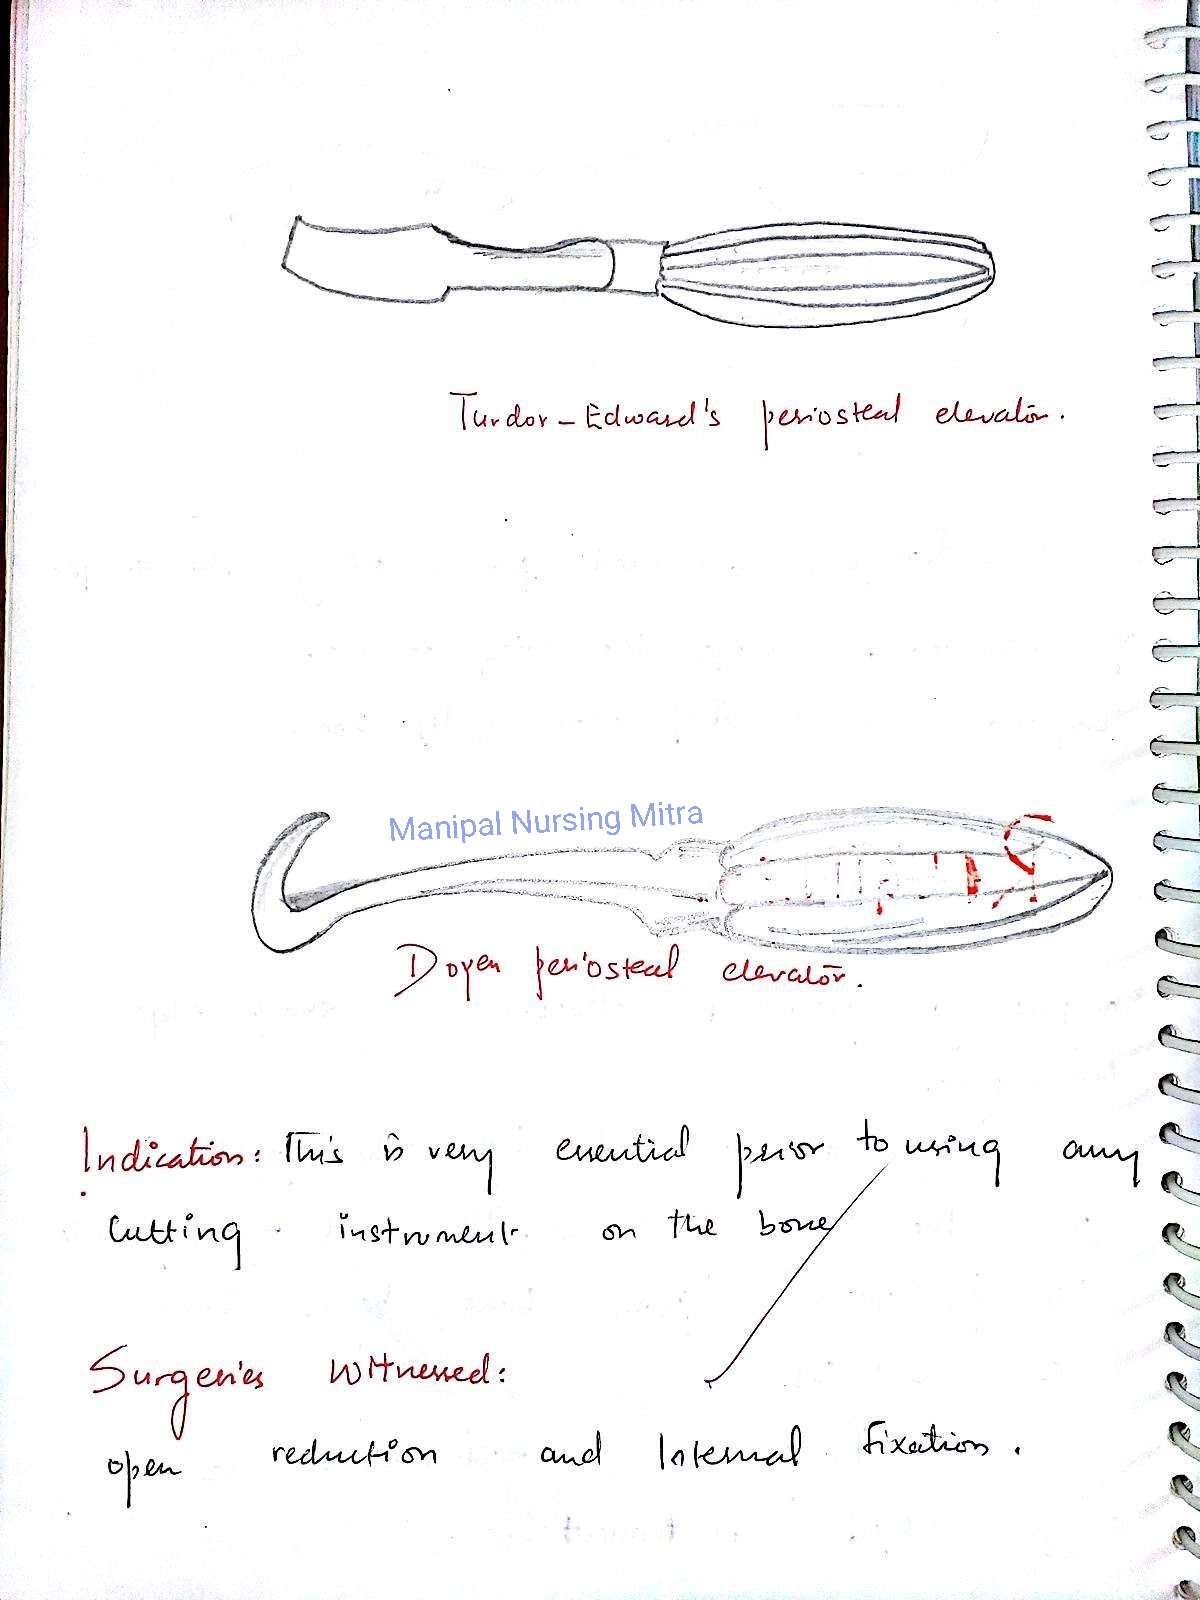 Turdor-Edward's periosteal elevator.
Manipal Nursing Mitra
Doyen periosteal elevator.
Indication: This is very essential prior to using any
cutting instrument on the bone
Surgeries Witnessed:
open reduction and Internal fixation.